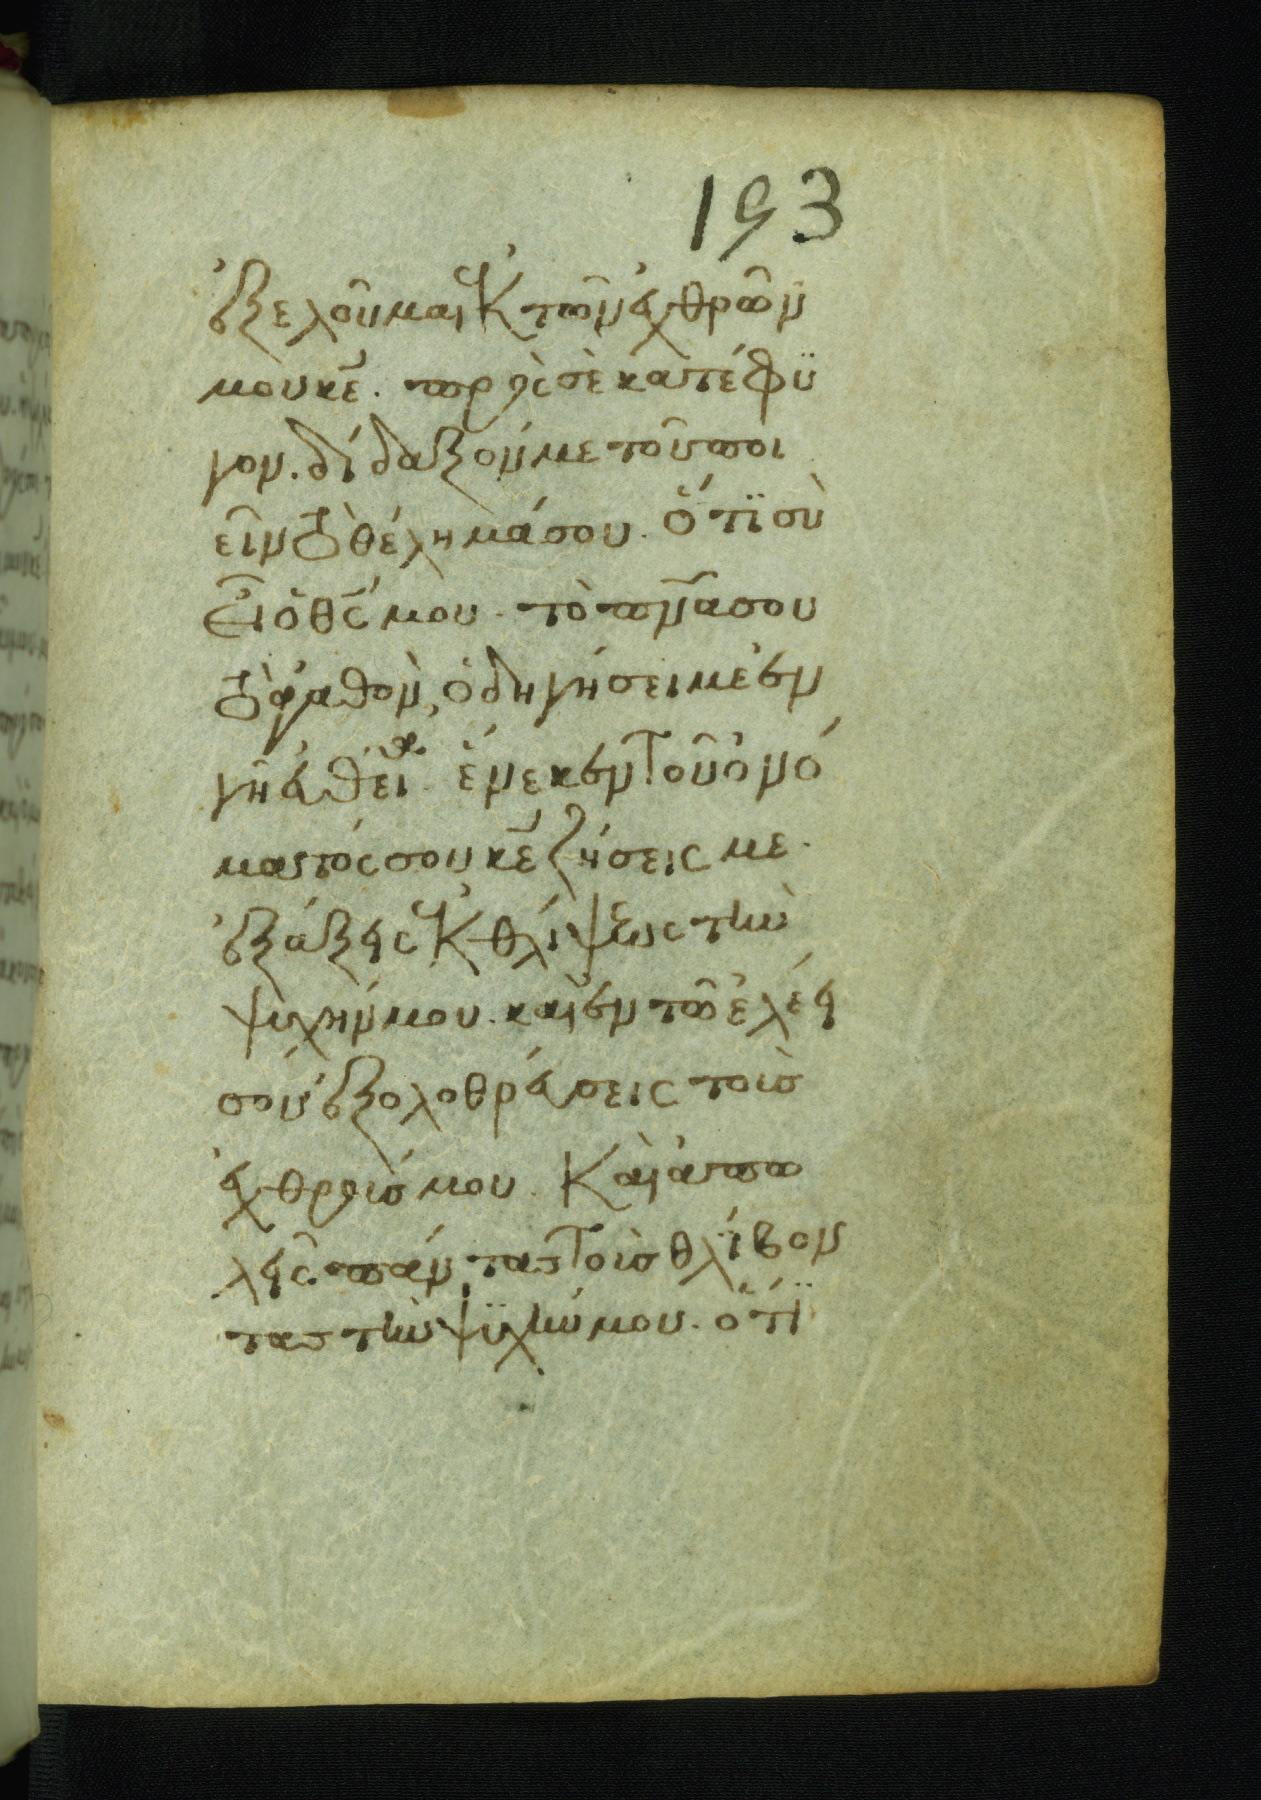 193
ἐξελοῦ μαι ἐκ τῶν ἐχθρῶν
μου κε̅. πρὸς σὲ κατέφϋ
γον. δίδαξόν με τοῦ ποι
εῖν τὸ θέλημά σου. ὅτϊ σὺ
εἶ ὁ θς̅ μου. τὸ πνα̅ σου
τὸ ἀγαθὸν, ὁδηγήσει με ἐν
γῆ εὐθεία. ἕνεκεν τοῦ ὀνό
ματός σου κε̅ ζήσεις με.
ἐξάξεις ἐκ θλίψεως τὴν
ψυχήν μου. καὶ ἐν τῶ ἐλέει
σου ἐξολοθρεύσεις τοὺς
ἐχθρούς μου. Καὶ ἀπο
λεῖς πάντας τοὺς θλίβον
τας τὴν ψϋχήν μου. ὅτϊ